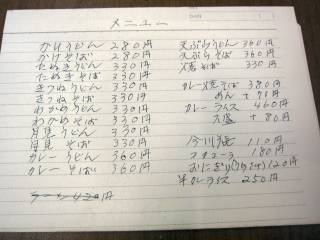 メニュー
かけうどん 280円
かけそば 280円
たぬきうどん 330円
たぬきそば 330円
きつねうどん 330円
きつねそば 330円
わかめうどん 330円
わかめそば 330円
月見うどん 330円
月見そば 330円
カレーうどん 360円
カレーそば 360円
天ぷらうどん 360円
天ぷらそば 360円
焼そば 330円
カレー焼そば 380円
めん +71円
カレーライス 460円
大盛 +80円
今川焼 110円
フランクフルト 180円
おにぎり 120円
半カレーライス 250円